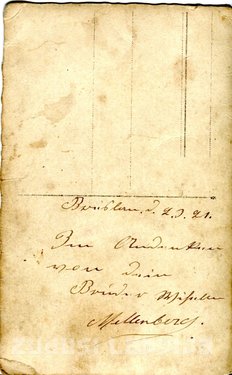 Breslau, d. 2.3.21.
Zum Andenken
von dein
Bruder Wilhelm
Mellenberg.